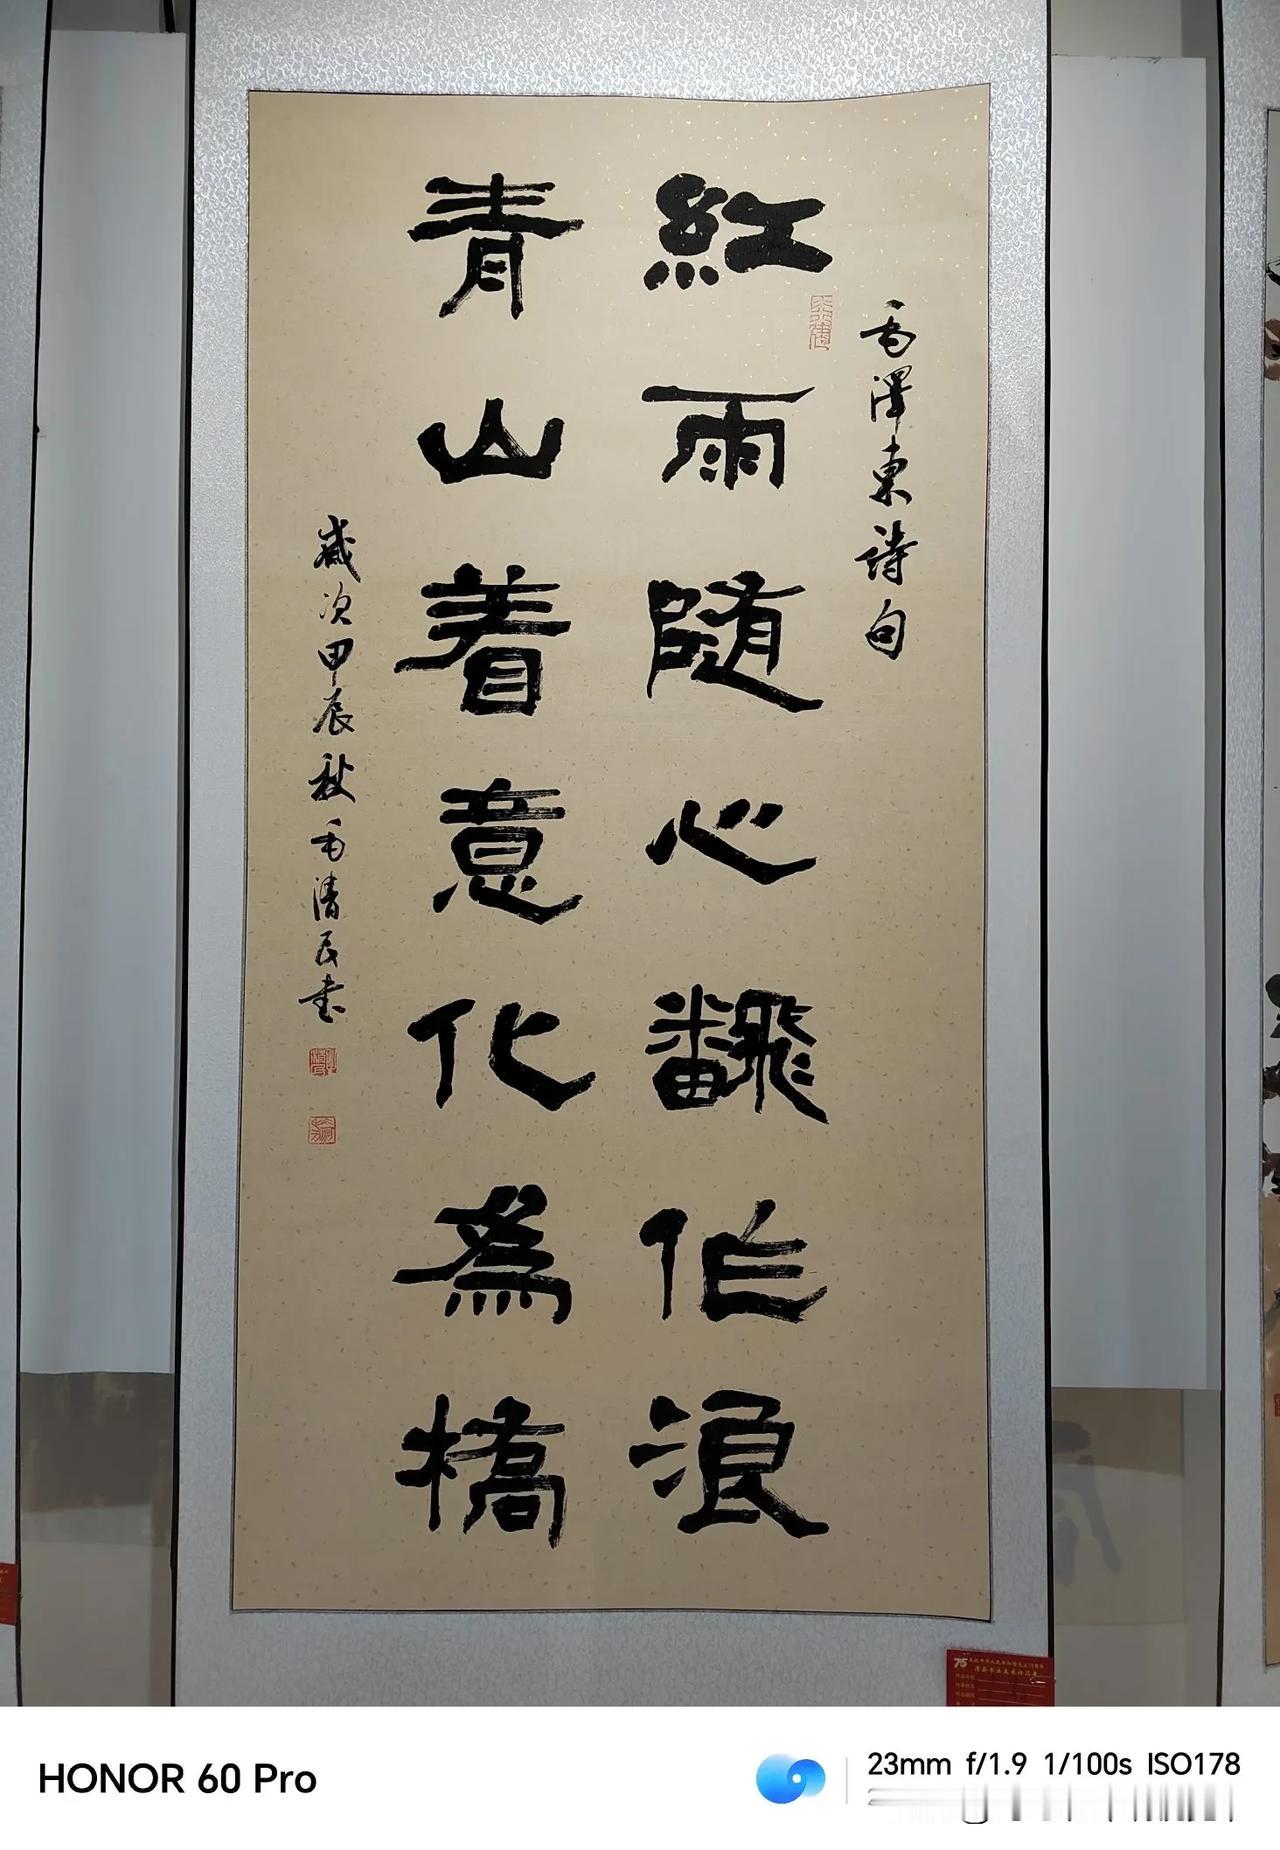 毛澤東詩句
紅雨隨心飜作浪
青山着意化為橋
歲次甲辰秋毛清民书
75
HONOR 60 Pro
23mm f/1.9 1/100s ISO178